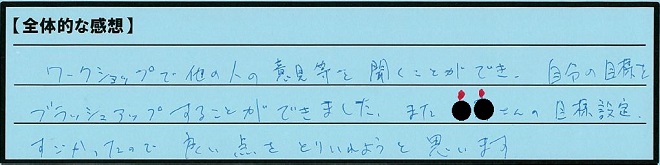 【全体的な感想】
ワークショップで他の人の意見等を聞くことができ、自分の目標を
ブラッシュアップすることができました。また●●さんの目標設定、
すごかったので良い点をとりいれようと思います